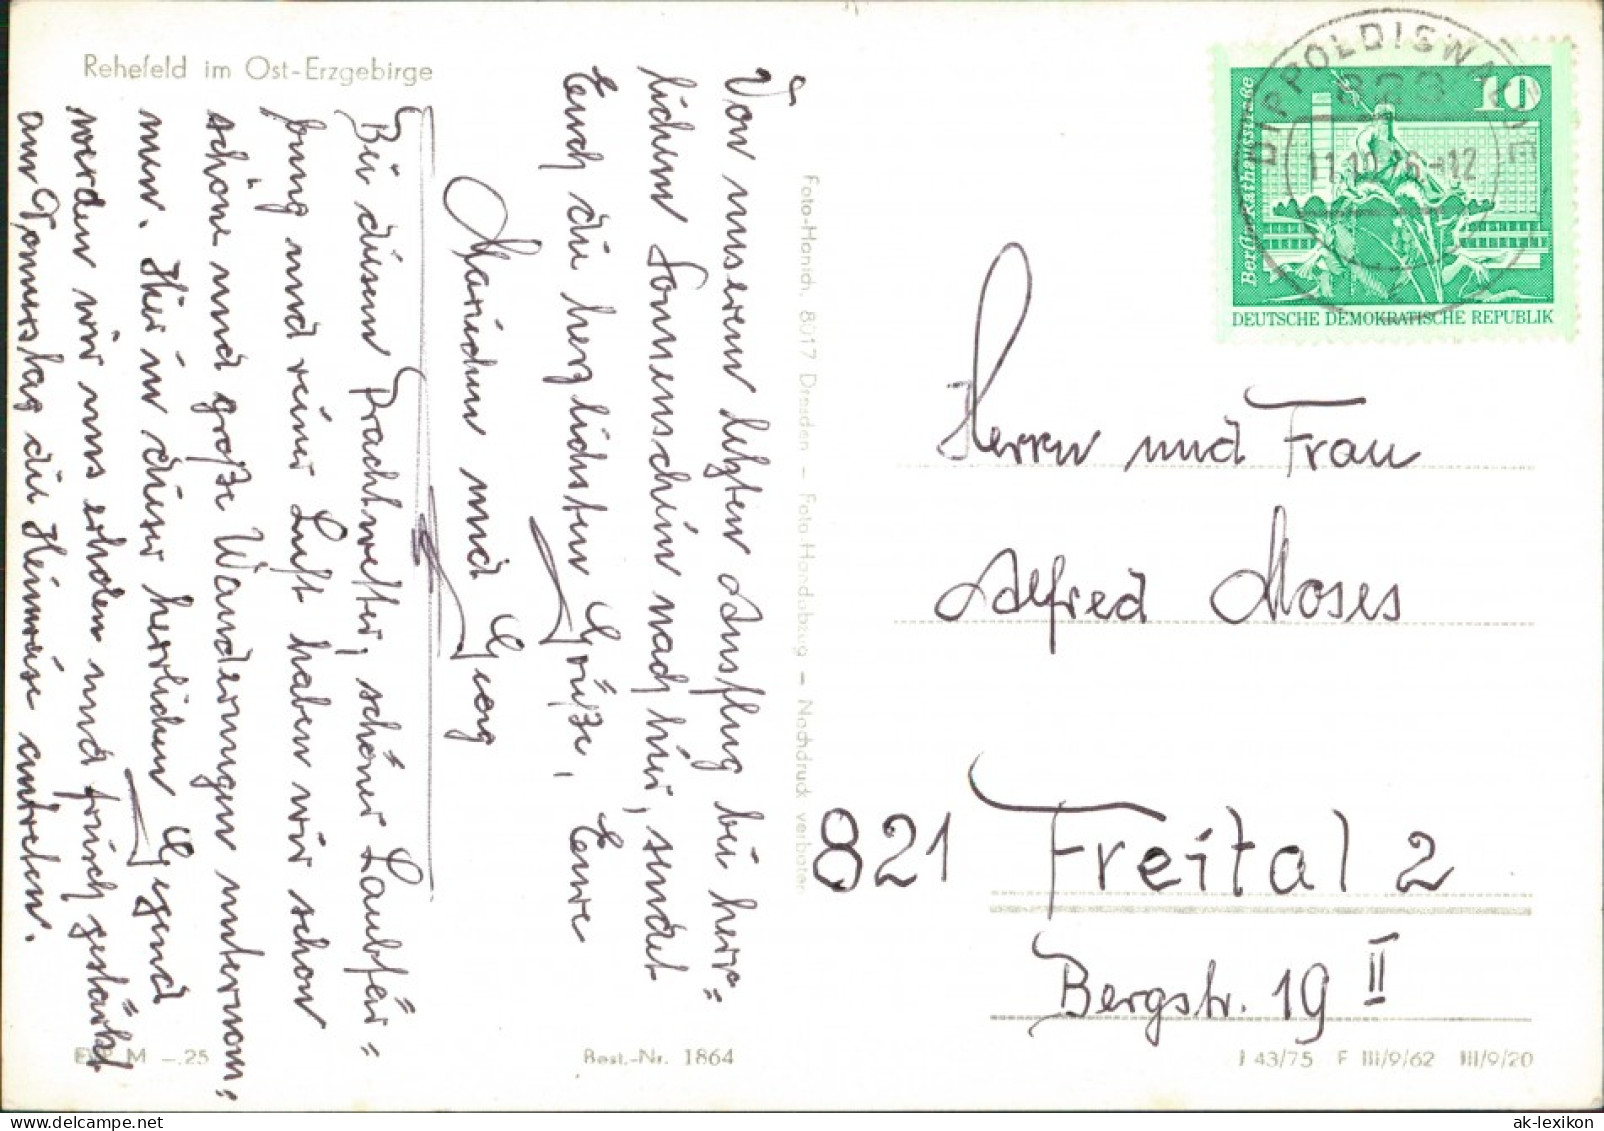 Rehefeld im Ost-Erzgebirge
Von unserem letzten Ausflug bei herr=
lichem Sonnenschein nach hier, sendet
Euch die herzlichsten Grüße, Eure
Mariechen und Georg
Bei diesem Prachtwetter, schöner Laubfär=
bung und reiner Luft haben wir schon
schöne und große Wanderungen unternom=
men. Hier in dieser herrlichen Gegend
werden wir uns erholen und frisch gestärkt
am Donnerstag die Heimreise antreten.
EVP M -.25
Best.-Nr. 1864
Foto-Hanich, 8017 Dresden — Foto-Handabzug — Nachdruck verboten
DIPPOLDISWALDE
823
11.10.76-12
10
Berlin-Rathausstraße
DEUTSCHE DEMOKRATISCHE REPUBLIK
Herrn und Frau
Alfred Moses
821 Freital 2
Bergstr. 19 II
J 43/75 F III/9/62 III/9/20
ak-lexikon